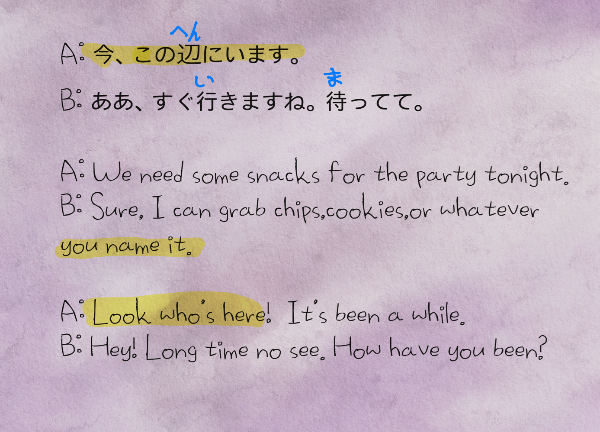 へん
A: 今、この辺にいます。
い ま
B: ああ、すぐ行きますね。待ってて。
A: We need some snacks for the party tonight.
B: Sure. I can grab chips,cookies,or whatever
you name it.
A: Look who's here! It's been a while.
B: Hey! Long time no see. How have you been?